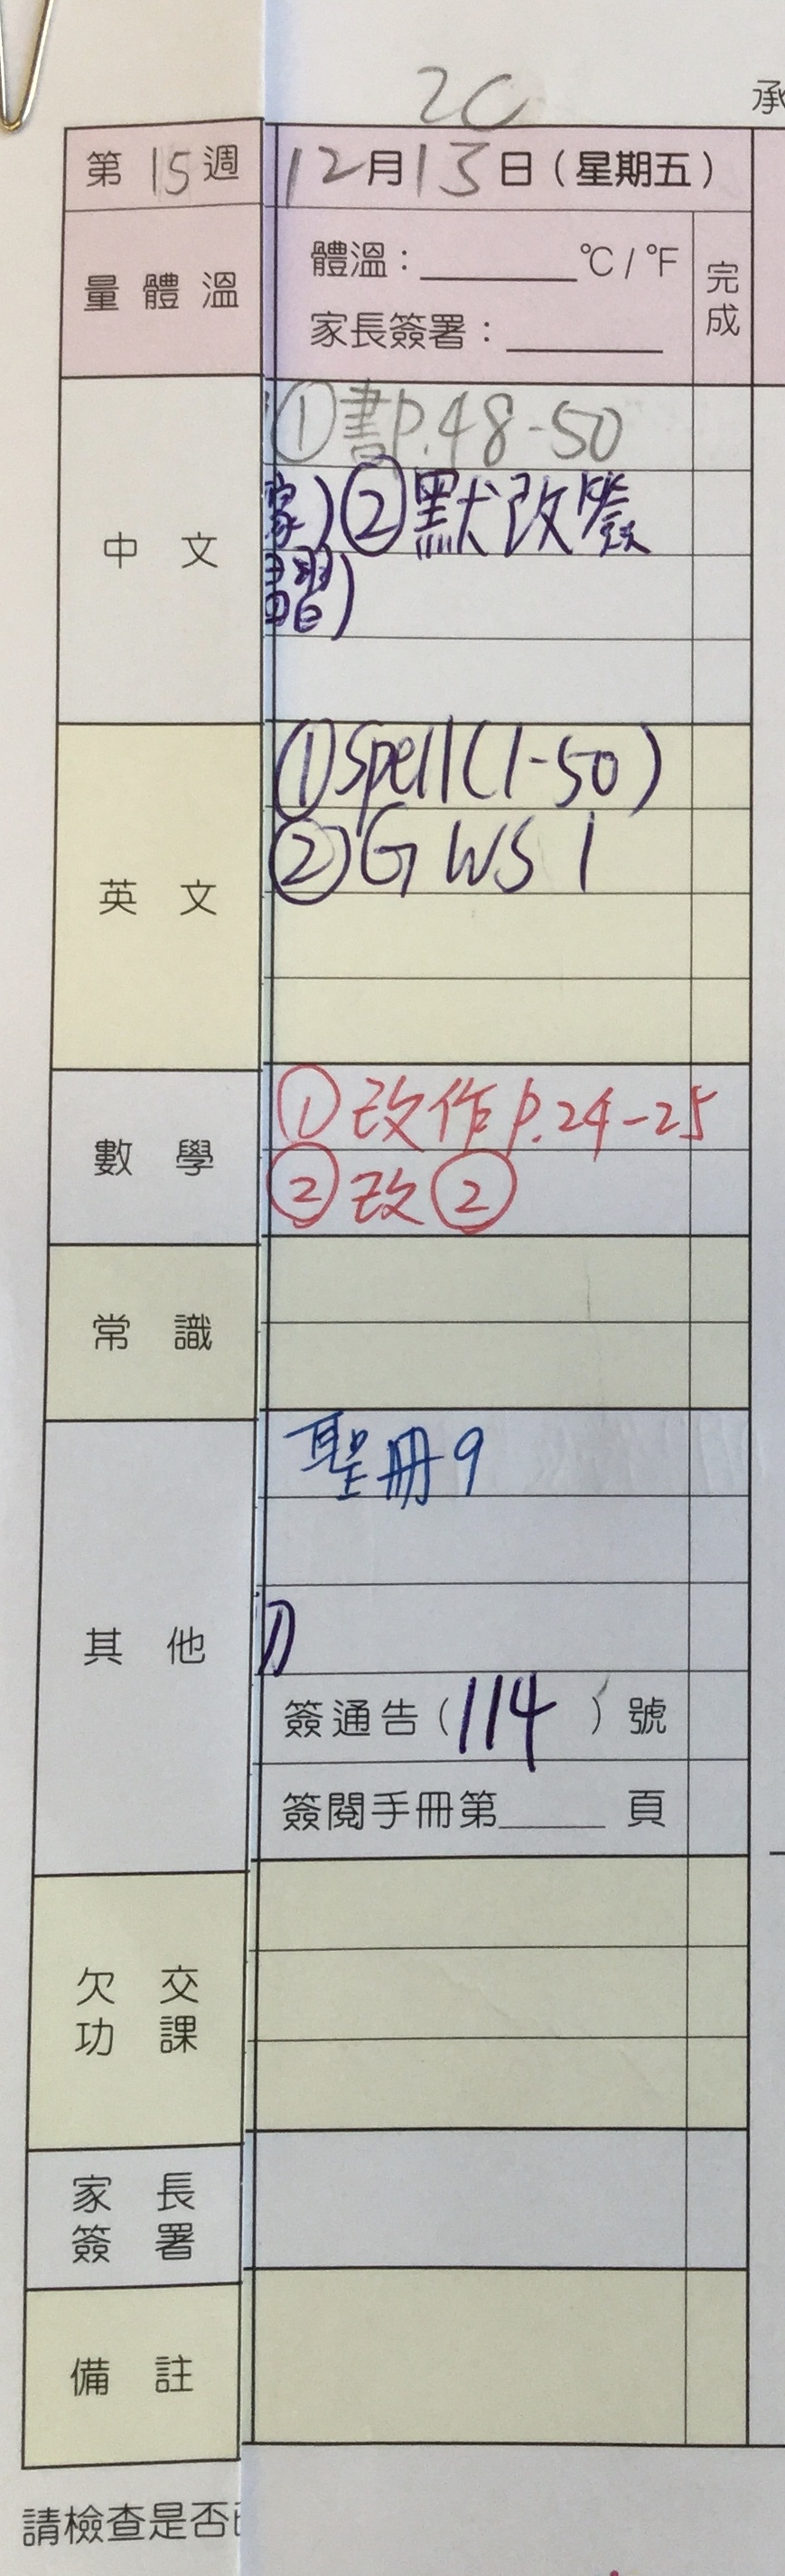 2C
承
第15週 12月13日（星期五）
量體溫 體溫：______°C / °F 完成
家長簽署：______
中文 ①書P.48-50
家)②默改簽
習)
英文 ①Spell(1-50)
②G WS 1
數學 ①改作P.24-25
②改②
常識
其他 聖冊9
簽通告（114）號
簽閱手冊第____頁
欠交功課
家長簽署
備註
請檢查是否已